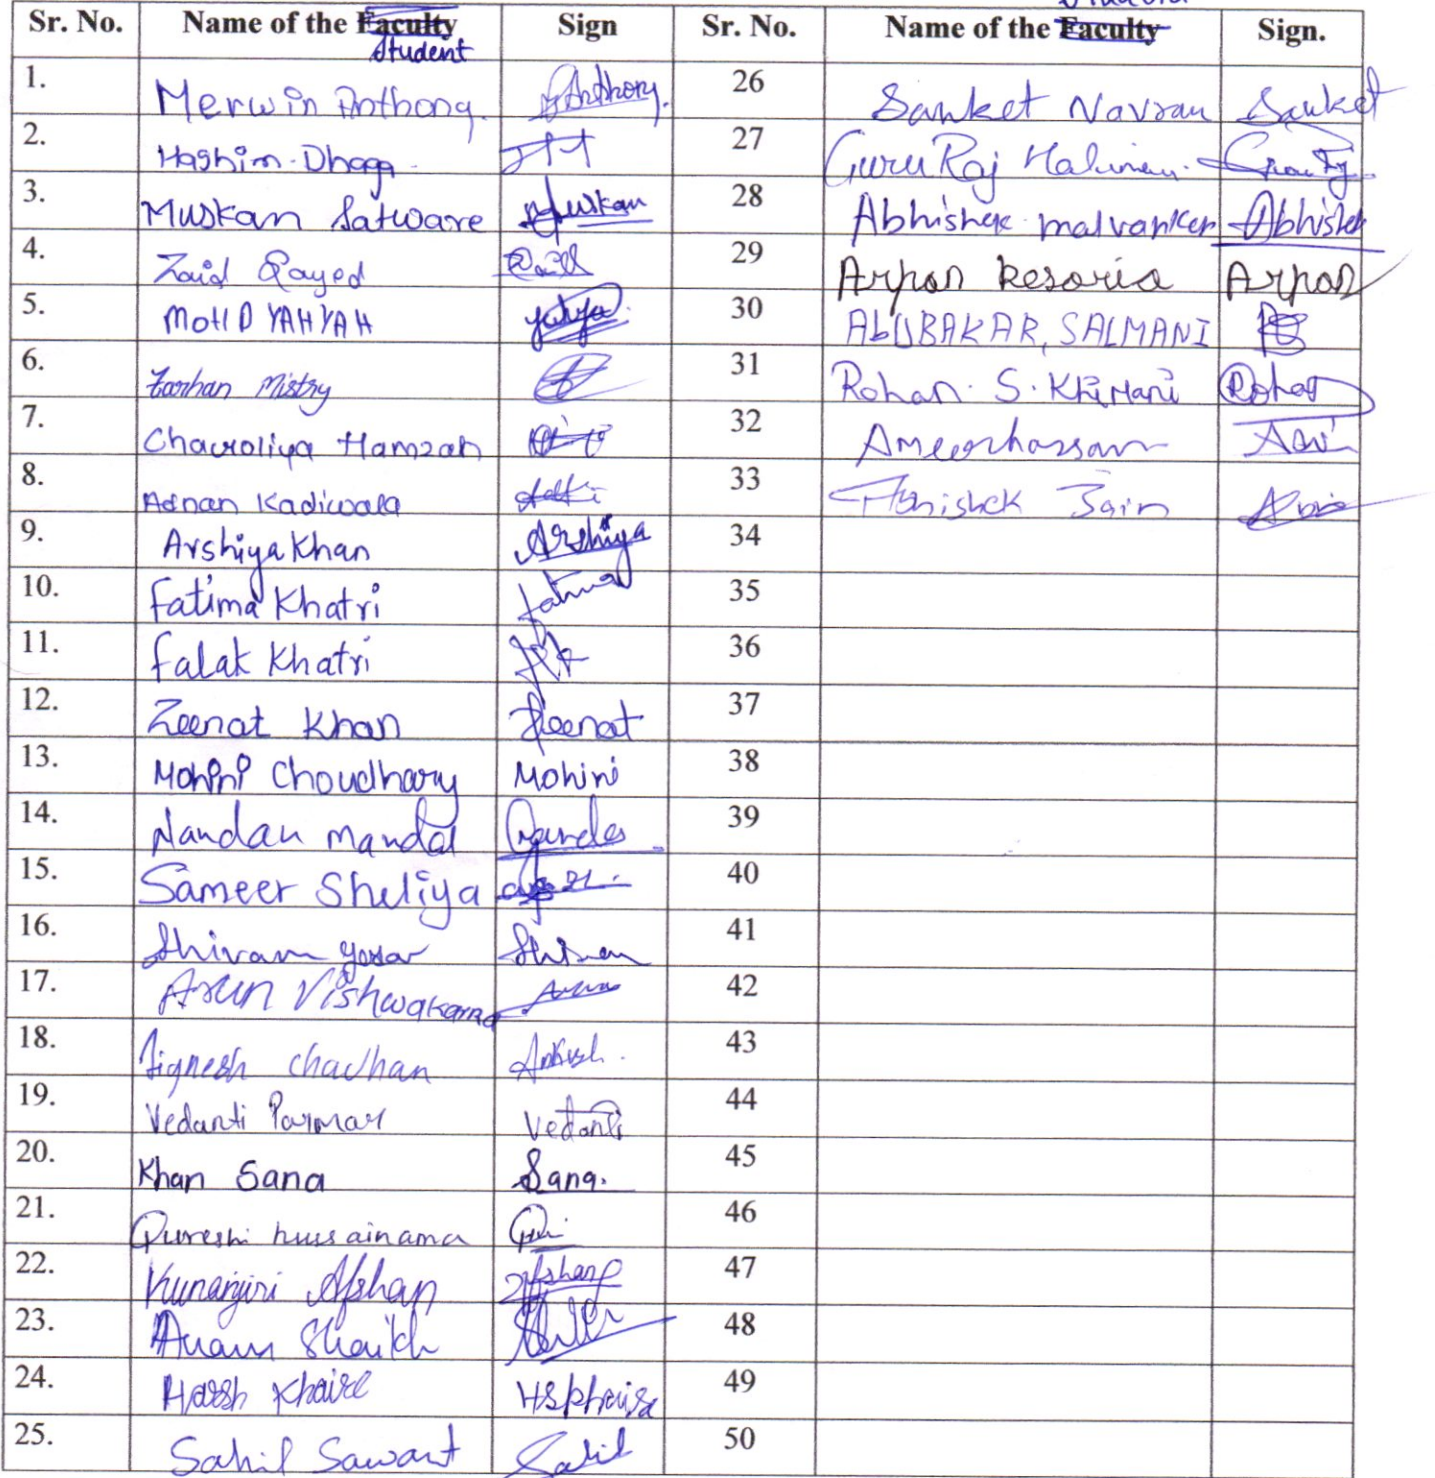 Sr. No. Name of the Faculty Sign Sr. No. Name of the Faculty Sign.
Student
1. Merwin Anthony. Anthony. 26 Sanket Navran Sanket
2. Hashim Dhaga 27 GuruRaj
3. Muskan Satware Muskan 28 Abhishek malvanker Abhishek
4. Zaid Sayed 29 Arpan Kesaria Arpan
5. MOHD YAHYAH yahya 30 AbUBAKAR, SALMANI
6. Farhan Mistry 31 Rohan. S. Khimani Rohan
7. Chauroliya Hamzah 32 Ameerhassan
8. Adnan Kadiwala 33 Abhishek Jain
9. Arshiya Khan Arshiya 34
10. Fatima Khatri fatima 35
11. Falak Khatri 36
12. Zeenat Khan Zeenat 37
13. Mohini Choudhary Mohini 38
14. Nandan Mandal 39
15. Sameer Sheliya 40
16. Shivam yadav 41
17. Arun Vishwakarma 42
18. Jignesh chauhan Ankush. 43
19. Vedanti Parmar Vedanti 44
20. Khan Sana Sana. 45
21. Qureshi hussainama 46
22. Kunangiri Afshan Afshan 47
23. Anam Shaikh 48
24. Harsh Khaire 49
25. Sahil Sawant Sahil 50